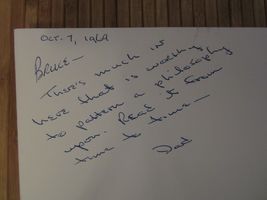 OCT. 7, 1969
BRUCE—
There's much in
here that is worthy
to pattern a philosophy
upon. Read it from
time to time—
Dad